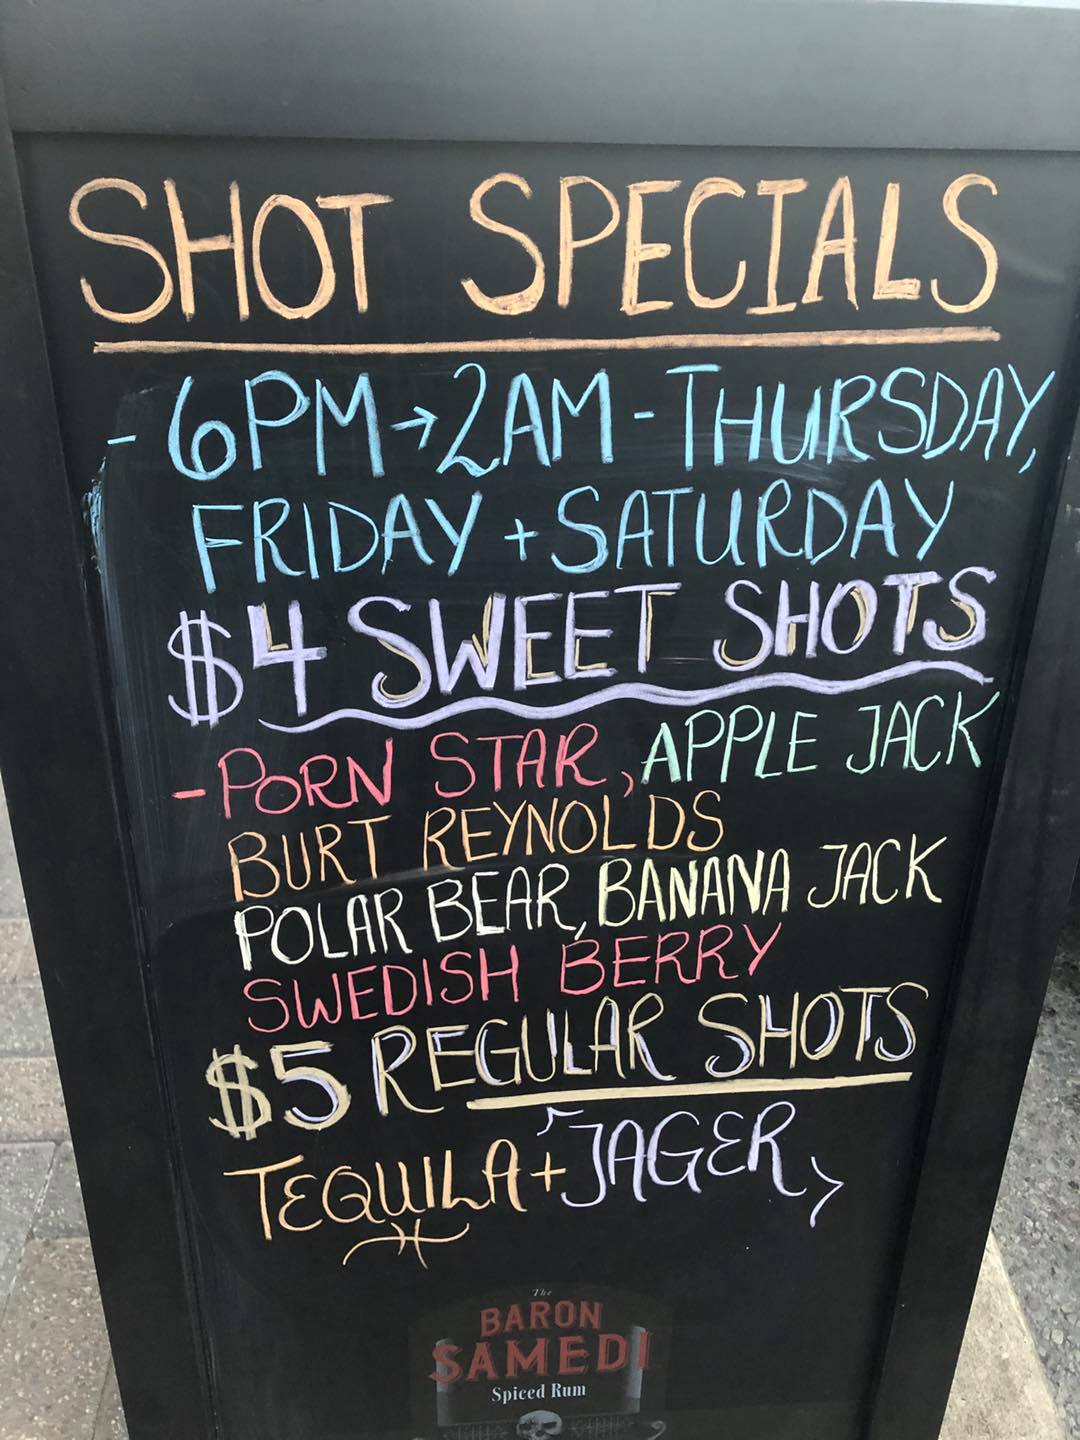 SHOT SPECIALS
- 6PM → 2AM - THURSDAY,
FRIDAY + SATURDAY
$4 SWEET SHOTS
- PORN STAR, APPLE JACK
BURT REYNOLDS
POLAR BEAR, BANANA JACK
SWEDISH BERRY
$5 REGULAR SHOTS
TEQUILA + JAGER
The
BARON
SAMEDI
Spiced Rum